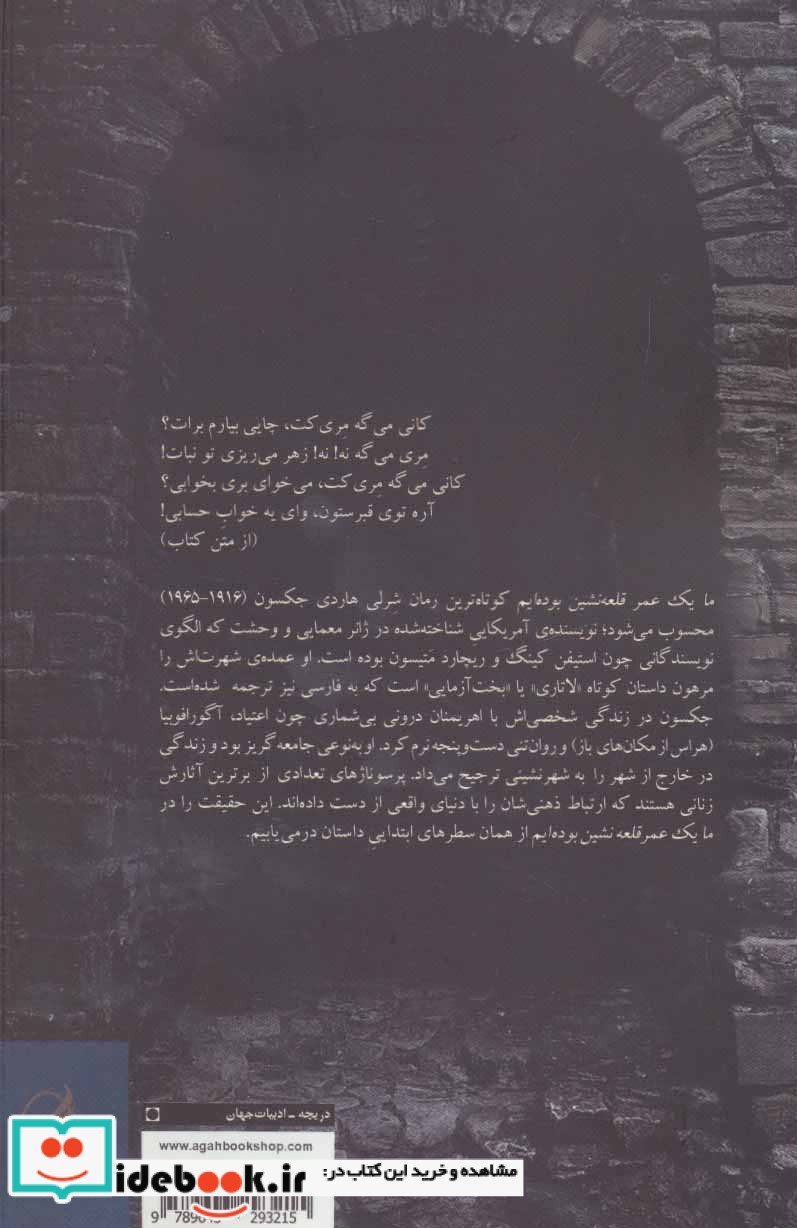 کانی می‌گه مِری‌کت، چایی بیارم برات؟
مِری می‌گه نه! نه! زهر می‌ریزی تو نبات!
کانی می‌گه مِری‌کت، می‌خوای بری بخوابی؟
آره توی قبرستون، وای یه خوابِ حسابی!
(از متن کتاب)
ما یک عمر قلعه‌نشین بوده‌ایم کوتاه‌ترین رمان شِرلی هاردی جکسون (۱۹۱۶-۱۹۶۵)
محسوب می‌شود؛ نویسنده‌ی آمریکاییِ شناخته‌شده در ژانر معمایی و وحشت که الگوی
نویسندگانی چون استیفن کینگ و ریچارد مَتیسون بوده است. او عمده‌ی شهرت‌اش را
مرهون داستان کوتاه «لاتاری» یا «بخت‌آزمایی» است که به فارسی نیز ترجمه شده‌است.
جکسون در زندگی شخصی‌اش با اهریمنان درونی بی‌شماری چون اعتیاد، آگورافوبیا
(هراس از مکان‌های باز) و روان‌تنی دست‌وپنجه نرم کرد. او به‌نوعی جامعه‌گریز بود و زندگی
در خارج از شهر را به شهرنشینی ترجیح می‌داد. پرسوناژهای تعدادی از برترین آثارش
زنانی هستند که ارتباط ذهنی‌شان را با دنیای واقعی از دست داده‌اند. این حقیقت را در
ما یک عمر قلعه نشین بوده‌ایم از همان سطرهای ابتداییِ داستان درمی‌یابیم.
دریچه - ادبیات جهان
www.agahbookshop.com
مشاهده و خرید این کتاب در:
idebook.ir
293215